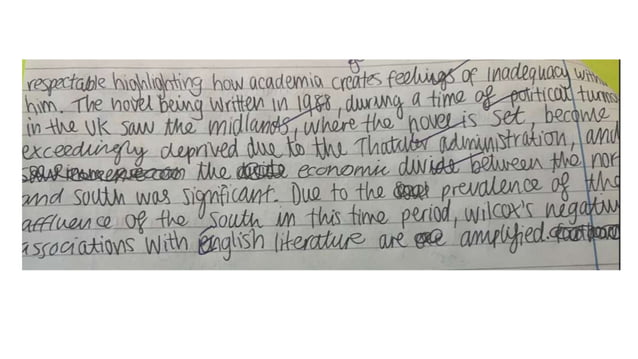 respectable highlighting how academia creates feelings of inadequacy with
him. The novel being written in 1988, during a time of political turmo
in the UK saw the midlands, where the novel is set become
exceedingly deprived due to the Thatcher administration, and
the economic divide between the nor
and south was significant. Due to the prevalence of the
affluence of the south in this time period, wilcox's negativ
associations with english literature are amplified.